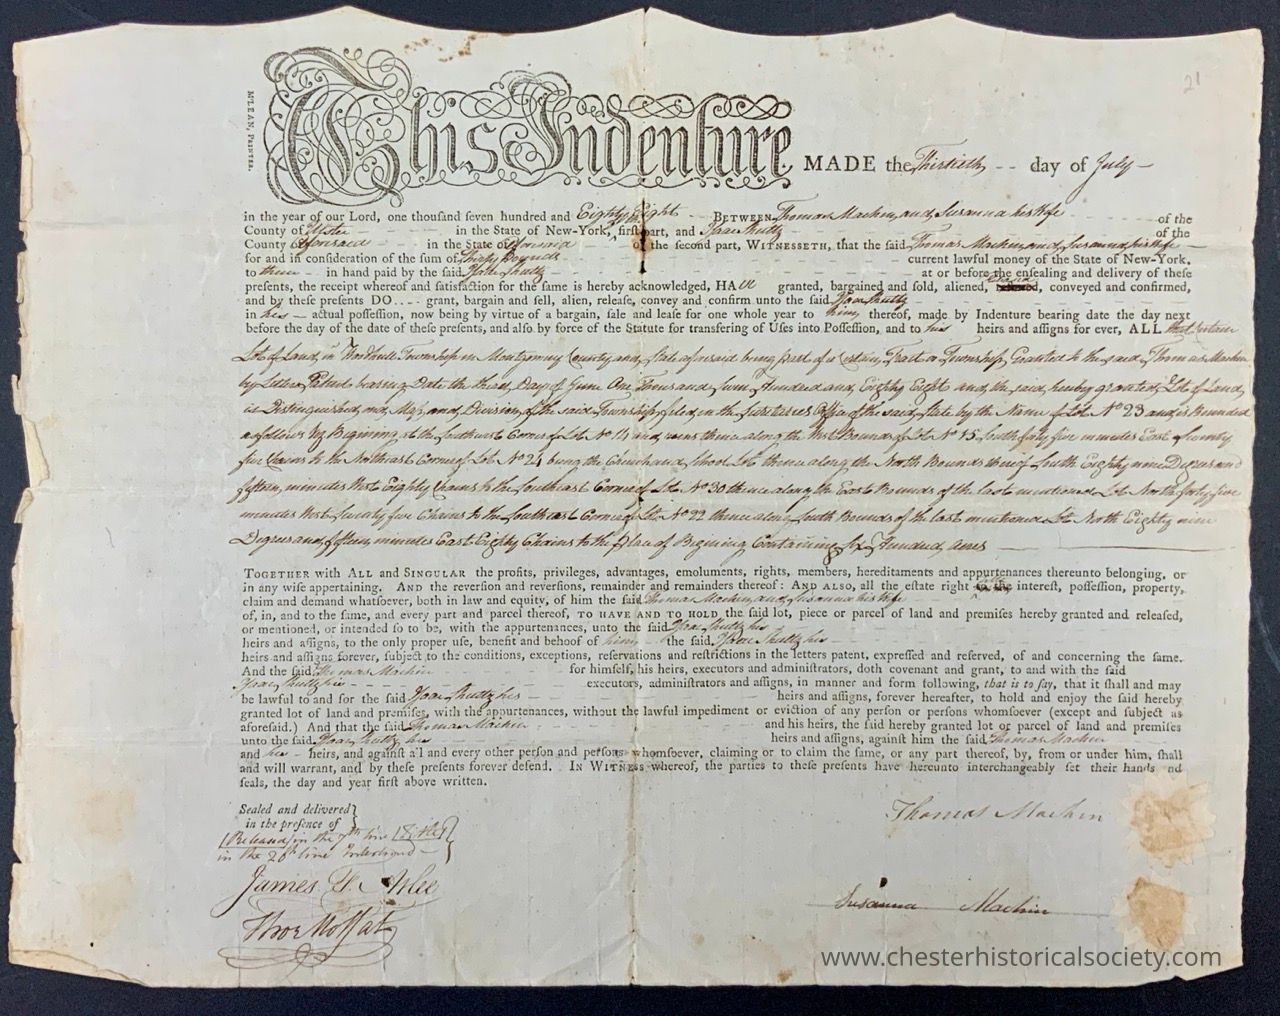 21
M'LEAN, Printer.
This Indenture MADE the Thirtieth day of July
in the year of our Lord, one thousand seven hundred and Eighty Eight BETWEEN Thomas Machin and Susanna his Wife of the
County of Ulster in the State of New-York, of the first part, and Isaac Shultz of the
County aforesaid in the State aforesaid of the second part, WITNESSETH, that the said Thomas Machin and Susanna his Wife
for and in consideration of the sum of Thirty Pounds current lawful money of the State of New-York,
to them in hand paid by the said Isaac Shultz at or before the ensealing and delivery of these
presents, the receipt whereof and satisfaction for the same is hereby acknowledged, HAVE granted, bargained and sold, aliened, conveyed and confirmed,
and by these presents DO grant, bargain and sell, alien, release, convey and confirm unto the said Isaac Shultz
in his actual possession, now being by virtue of a bargain, sale and lease for one whole year to him thereof, made by Indenture bearing date the day next
before the day of the date of these presents, and also by force of the Statute for transfering of Uses into Possession, and to his heirs and assigns for ever, ALL that Certain
Lot of Land, in Township in Montgomery County, and State aforesaid being part of a Certain Tract or Township, Granted to the said Thomas Machin
by Letters Patent bearing Date the third Day of June One Thousand Seven Hundred and Eighty Eight and the said hereby granted Lot of Land,
is Distinguished, on a Map, and Division, of the said Township filed in the Secretaries Office of the said State by the Name of Lot No 23 and is Bounded
as follows Viz Begining at the Southwest Corner of Lot No 14 and runs thence along the West Bounds of Lot No 15 South forty five minutes East Seventy
five Chains to the Northeast Corner of Lot No 24 being the Church and School Lot thence along the North Bounds thereof South Eighty nine Degrees and
fifteen minutes West Eighty Chains to the Southeast Corner of Lot No 30 thence along the East Bounds of the last mentioned Lot North forty five
minutes West Seventy five Chains to the Southeast Corner of Lot No 22 thence along South Bounds of the last mentioned Lot North Eighty nine
Degrees and fifteen minutes East Eighty Chains to the Place of Begining Containing Six Hundred Acres
TOGETHER with ALL and SINGULAR the profits, privileges, advantages, emoluments, rights, members, hereditaments and appurtenances thereunto belonging, or
in any wise appertaining. AND the reversion and reversions, remainder and remainders thereof: AND ALSO, all the estate right title interest, possession, property,
claim and demand whatsoever, both in law and equity, of him the said Thomas Machin and Susanna his Wife
of, in, and to the same, and every part and parcel thereof, TO HAVE AND TO HOLD the said lot, piece or parcel of land and premises hereby granted and released,
or mentioned, or intended so to be, with the appurtenances, unto the said Isaac Shultz his
heirs and assigns, to the only proper use, benefit and behoof of him the said Isaac Shultz his
heirs and assigns forever, subject to the conditions, exceptions, reservations and restrictions in the letters patent, expressed and reserved, of and concerning the same.
And the said Thomas Machin for himself, his heirs, executors and administrators, doth covenant and grant, to and with the said
Isaac Shultz his executors, administrators and assigns, in manner and form following, that is to say, that it shall and may
be lawful to and for the said Isaac Shultz his heirs and assigns, forever hereafter, to hold and enjoy the said hereby
granted lot of land and premises, with the appurtenances, without the lawful impediment or eviction of any person or persons whomsoever (except and subject as
aforesaid.) And that the said Thomas Machin and his heirs, the said hereby granted lot or parcel of land and premises
unto the said Isaac Shultz his heirs and assigns, against him the said Thomas Machin
and his heirs, and against all and every other person and persons whomsoever, claiming or to claim the same, or any part thereof, by, from or under him, shall
and will warrant, and by these presents forever defend. IN WITNESS whereof, the parties to these presents have hereunto interchangeably set their hands and
seals, the day and year first above written.
Sealed and delivered
in the presence of
[Released] in the 7th line [title]
in the 20th line Interlined
Thomas Machin
James
Thos Moffat
Susanna Machin
www.chesterhistoricalsociety.com